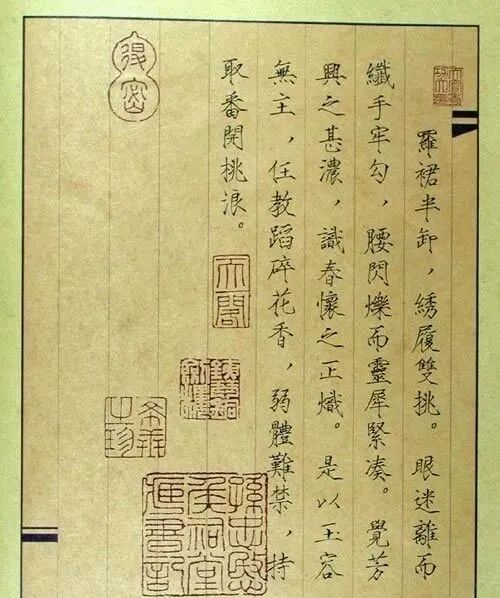 羅裙半卸，綉履雙挑。眼迷離而
纖手牢勾，腰閃爍而靈犀緊凑。覺芳
興之甚濃，識春懷之正熾。是以玉容
無主，任教蹈碎花香，弱體難禁，持
取番開桃浪。